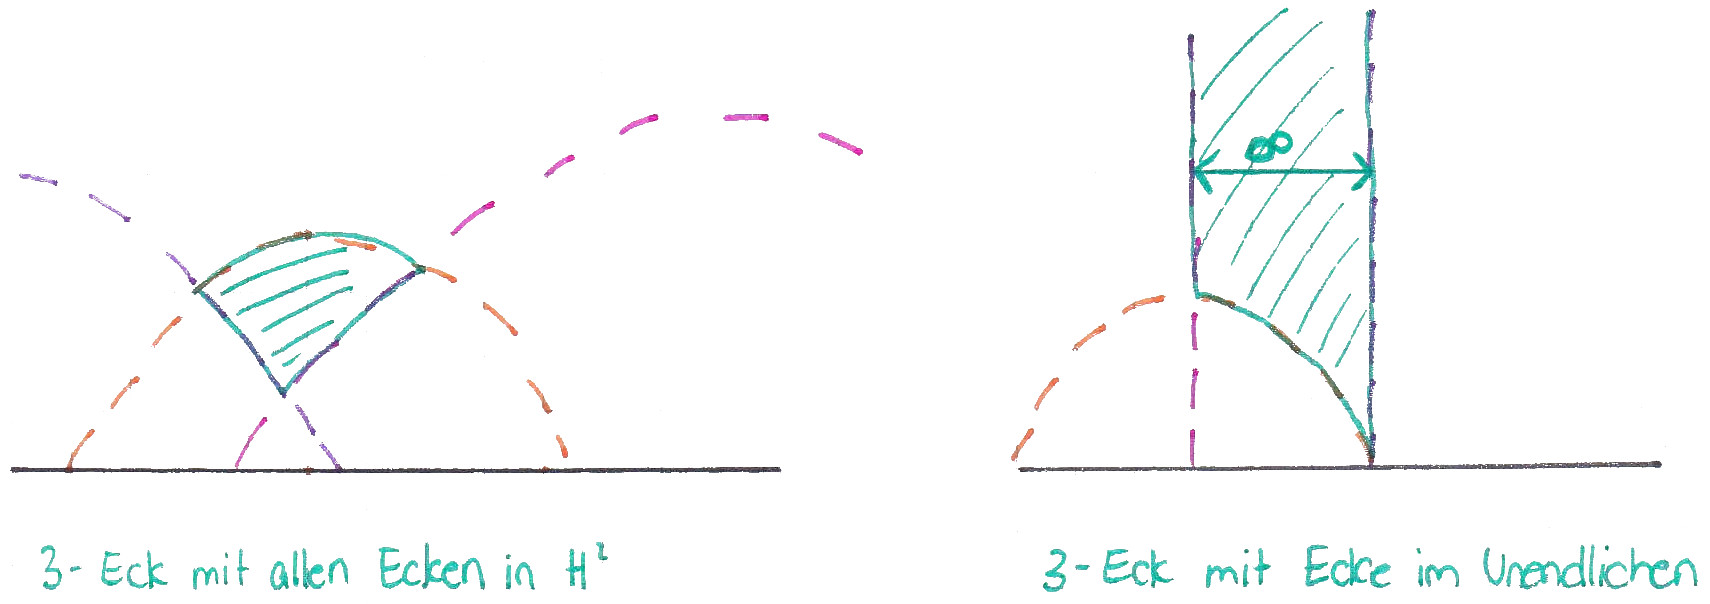 ∞
3-Eck mit allen Ecken in H²
3-Eck mit Ecke im Unendlichen